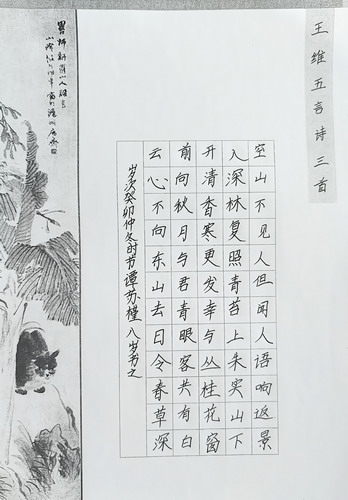 王维五言诗三首
空山不见人但闻人语响返景
入深林复照青苔上朱实山下
开清香寒更发幸与丛桂花窗
前向秋月与君青眼客共有白
云心不向东山去日令春草深
岁次癸卯仲冬时节谭苏槿八岁书之